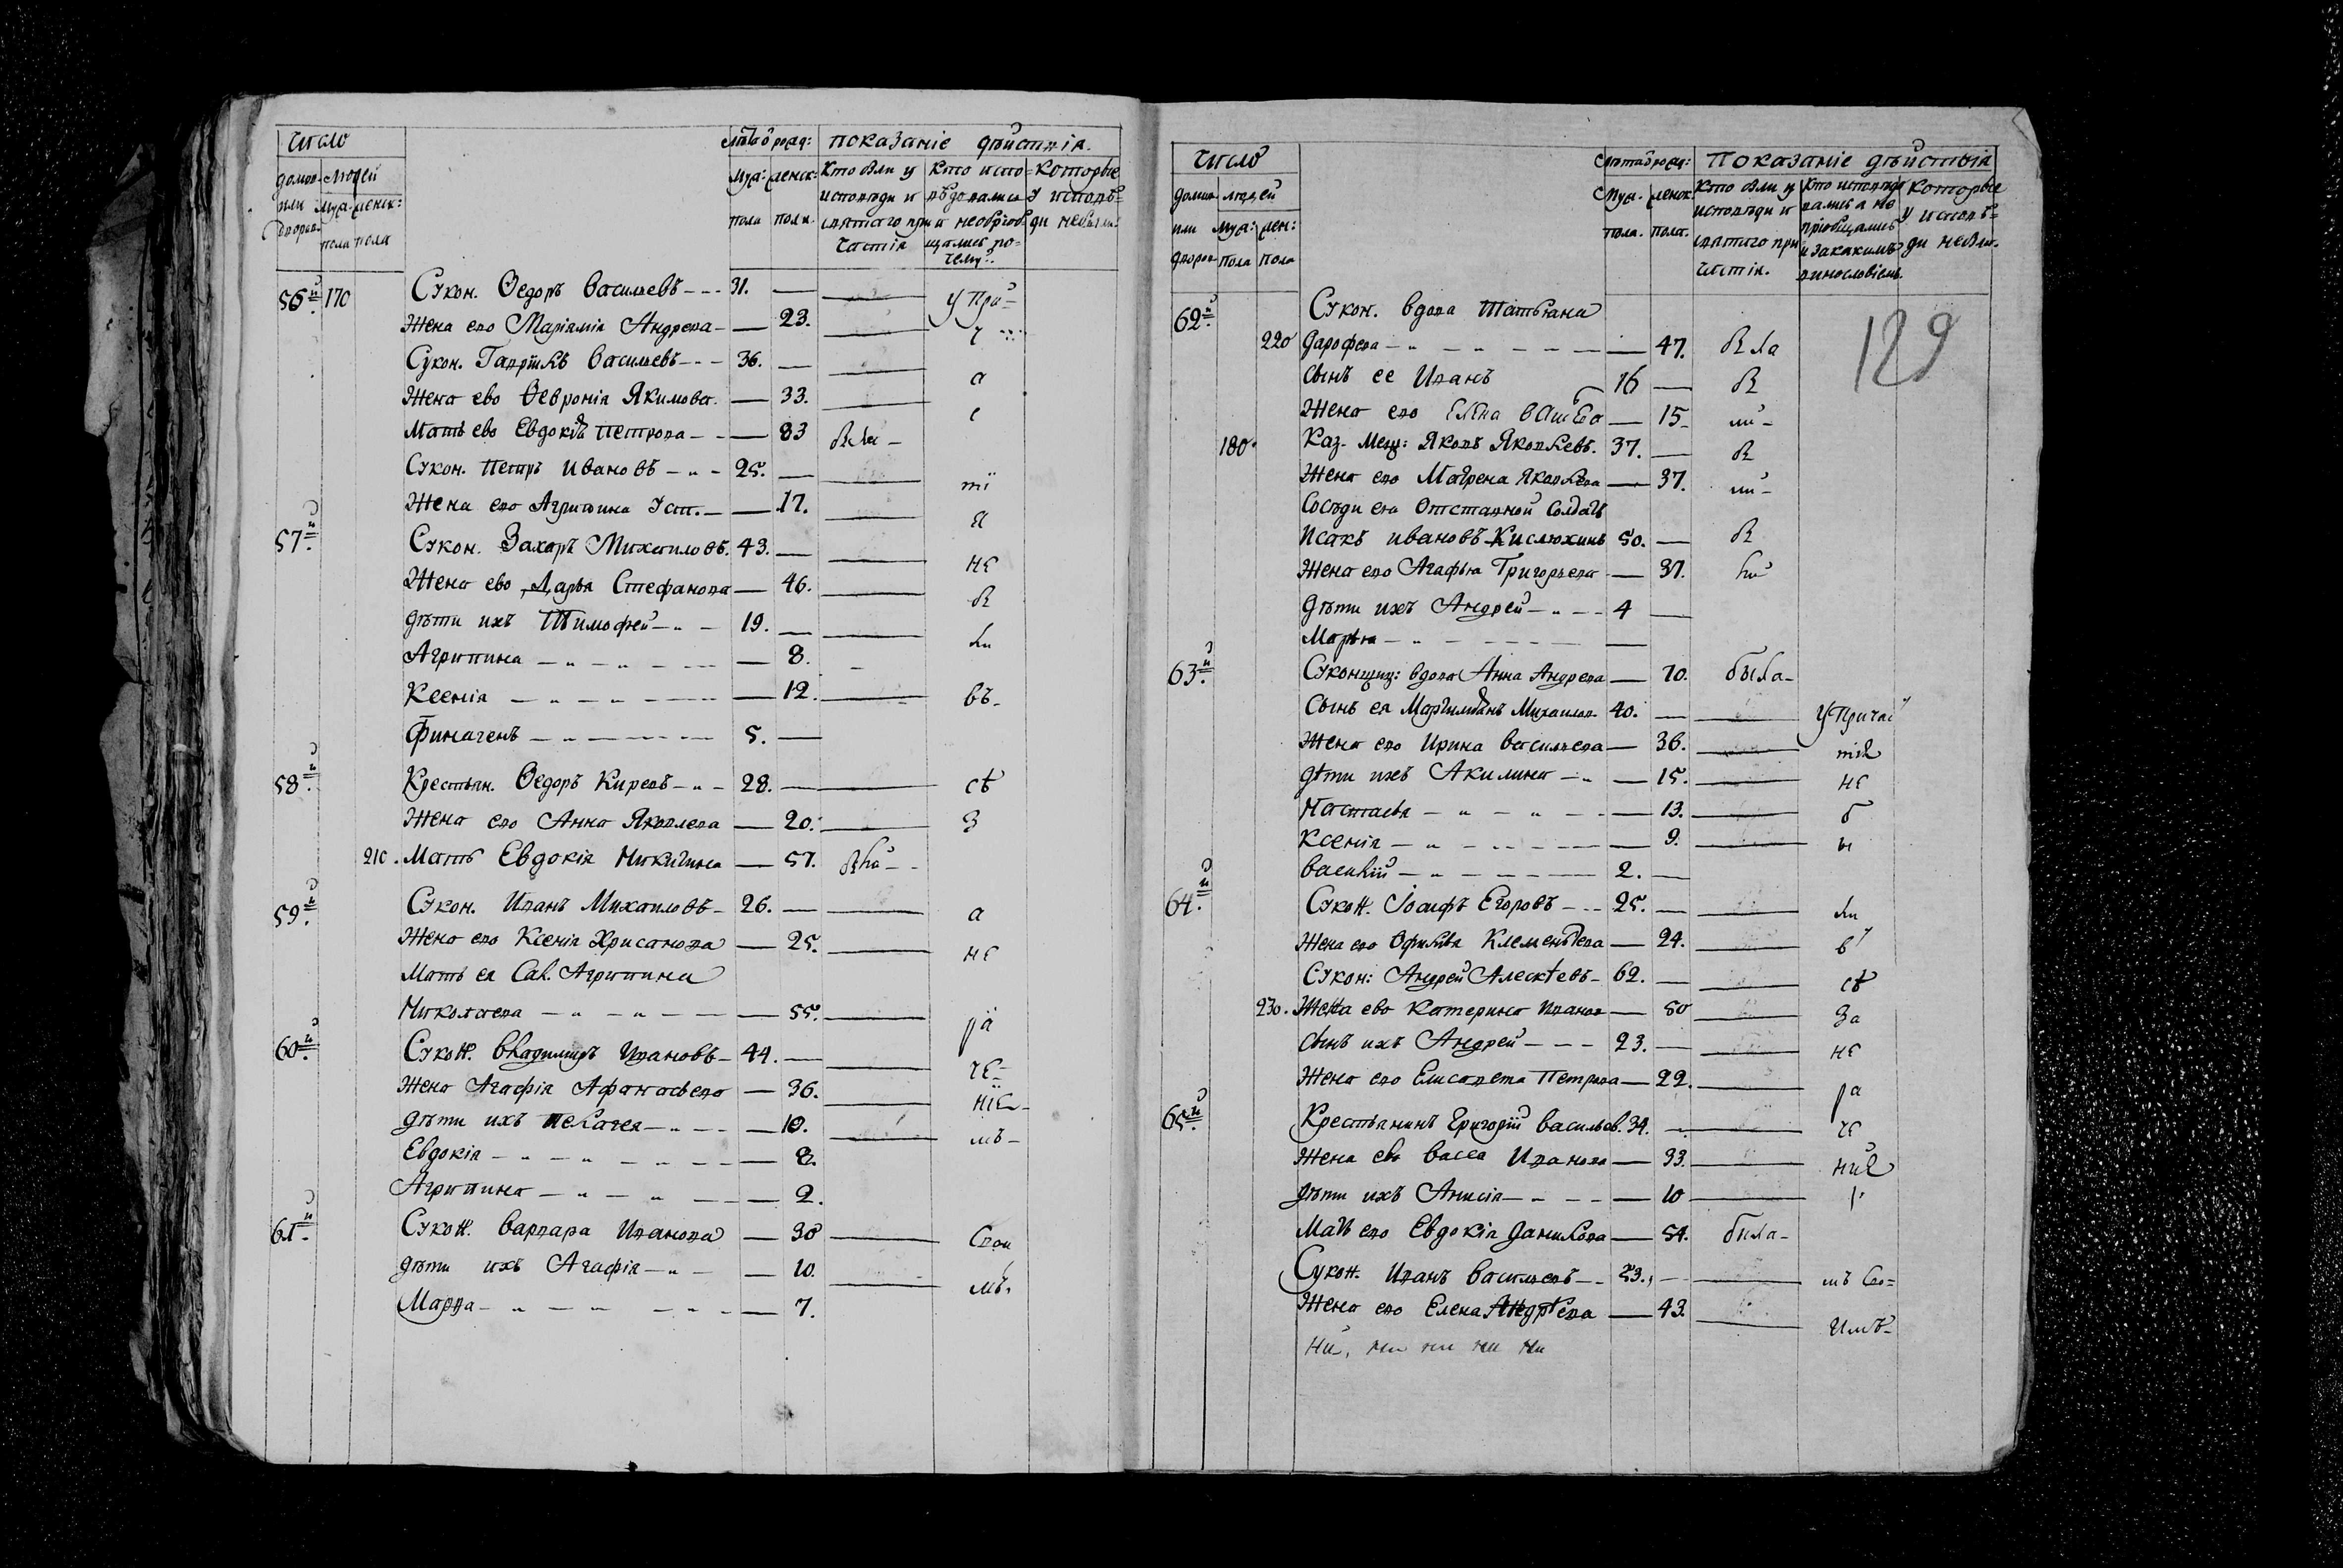 Число
домов людей
или муж: женск:
дворов пола пола
Лѣта ѿ рожд:
муж: женск:
пола пола.
показаніе дѣйствія.
Кто были у исповѣди и святаго причастія
Кто исповѣдовались и необрїобщались почему:
которые у исповѣди небыли
56й 170 Сукон. Ѳедоръ Васильевъ 31. — у При=
Жена ево Маріамія Андреева — 23. ч
Сукон. Гаврїилъ Васильевъ 36. — а
Жена ево Ѳевронія Якимова — 33. с
Мать ево Евдокїѧ Петрова — 83 была
Сукон. Петръ Ивановъ 25. — тї
Жена ево Агрипина Уст. — 17. я
57й Сукон. Захаръ Михаиловъ. 43. — не
Жена ево Дарья Стефанова — 46. бы
дѣти ихъ Тимофей 19. — ли
Агрипина — 8.
Ксенія — 12. въ
Финагенъ 5. —
58й Крестьян. Ѳедоръ Киревъ 28. — сѣ
Жена ево Анна Яковлева — 20. з
210. Мать Евдокія Никитина — 57. была
59й Сукон. Иванъ Михаиловъ 26. — а
Жена ево Ксенія Хрисанова — 25. не
Мать ея Сол. Агрипина
Николаева — 55. рä
60й Сукон. Владимиръ Ивановъ 44. — че
Жена Агафія Афонасьева — 36. ніе
дѣти ихъ Пелагея — 10. мъ
Евдокія — 8.
Агрипина — 2.
61й Сукон. Варвара Иванова — 30 Свои
дѣти ихъ Агафія — 10. мъ.
Марѳа — 7.
Число
домов людей
или муж: жен:
дворов пола пола
Лѣта ѿ рожд:
Муж. женск.
пола. пола.
Показаніе дѣйствія
Кто были у исповѣди и святаго причастія.
Кто исповѣдовались а не пріобщались и за какимъ винословіемъ.
которые у исповѣди небыли.
129
62й Сукон. вдова Татьяна
220 Дарофева — 47. была
сынъ ее Иванъ 16 — бы
Жена ево Елена — 15 ли
180. Каз. Мещ: Яковъ Яковлевъ. 37. — бы
Жена ево Матрена Яковлева — 37. ли
Сосѣди ево Отставной Солдатъ
Исакъ Ивановъ Кислюхинъ 50. — бы
Жена ево Агафья Григорьева — 37. ли
дѣти ихъ Андрей 4 —
Марья —
63й Суконщиц: вдова Анна Андреева — 70. была
Сынъ ея Михаилов 40. — У Прича
Жена ево Ирина Васильева — 36. тія
дѣти ихъ Акилина — 15. не
Настасья — 13. б
Ксенія — 9. ы
Василїй 2. —
64й Сукон. Іосифъ Егоровъ 25. — ли
Жена ево Офимья Клементьева — 24. в
Сукон: Андрей Алексѣевъ 62. — сѣ
230. Жена ево Катерина Иванов — 50 За
Сынъ ихъ Андрей 23. — не
Жена ево Елисавета Петрова — 22. ра
65й Крестьянинъ Григорїй Васильев. 34. — че
Жена ево Васса Иванова — 33. ние
дѣти ихъ Анисія — 10
Мать ево Евдокія Данилова — 54. была
Сукон. Иванъ Васильевъ 23. — мъ Сво=
Жена ево Елена Андрѣева — 43. имъ
ни, ни ни ни ни